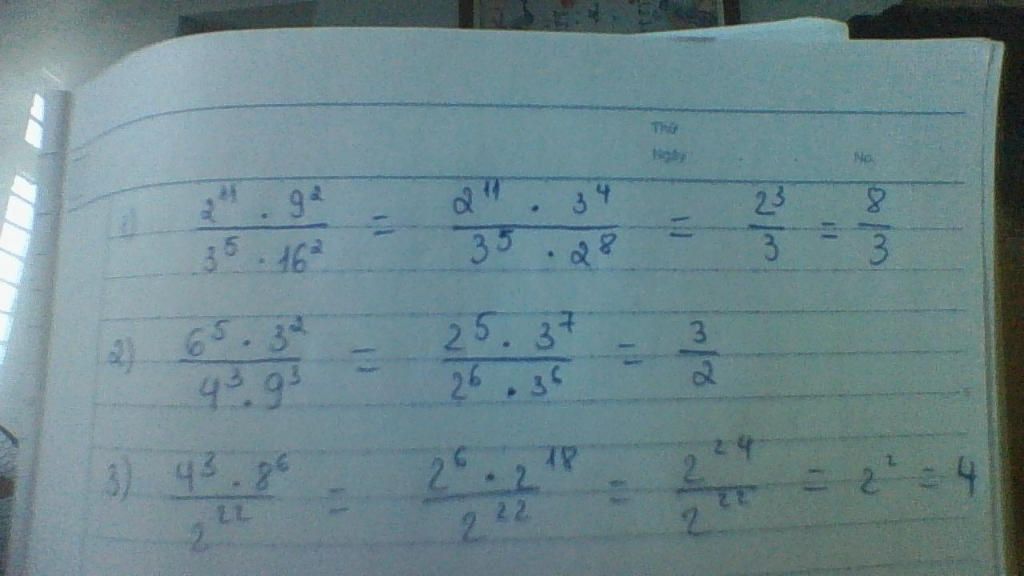 Thứ
Ngày No.
1) (2^11 . 9^2)/(3^5 . 16^2) = (2^11 . 3^4)/(3^5 . 2^8) = 2^3/3 = 8/3
2) (6^5 . 3^2)/(4^3 . 9^3) = (2^5 . 3^7)/(2^6 . 3^6) = 3/2
3) (4^3 . 8^6)/2^22 = (2^6 . 2^18)/2^22 = 2^24/2^22 = 2^2 = 4